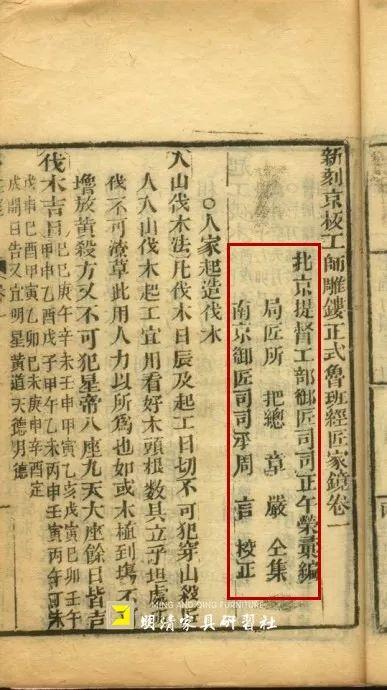 新刻京板工師雕鏤正式魯班經匠家鏡卷一
北京提督工部御匠司司正午榮彙編
局匠所把總章嚴仝集
南京御匠司司承周言校正
○人家起造伐木
入山伐木法凡伐木日辰及起工日切不可犯穿山殺
入山伐木起工宜用看好木頭根數具立平坦處
伐不可潦草此用人力以所為也如或木植到塲不
放黃殺方又不可犯皇帝八座九天大座餘日皆吉
伐木吉日己巳庚午辛未壬申甲戌乙亥戊寅己卯壬午
甲申乙酉戊子甲午乙未丙申壬寅丙午丁未
戊申己酉甲寅乙卯己未庚申辛酉定
成開日吉又宜明星黃道天德月德
MING AND QING FURNITURE
明清家具研習社